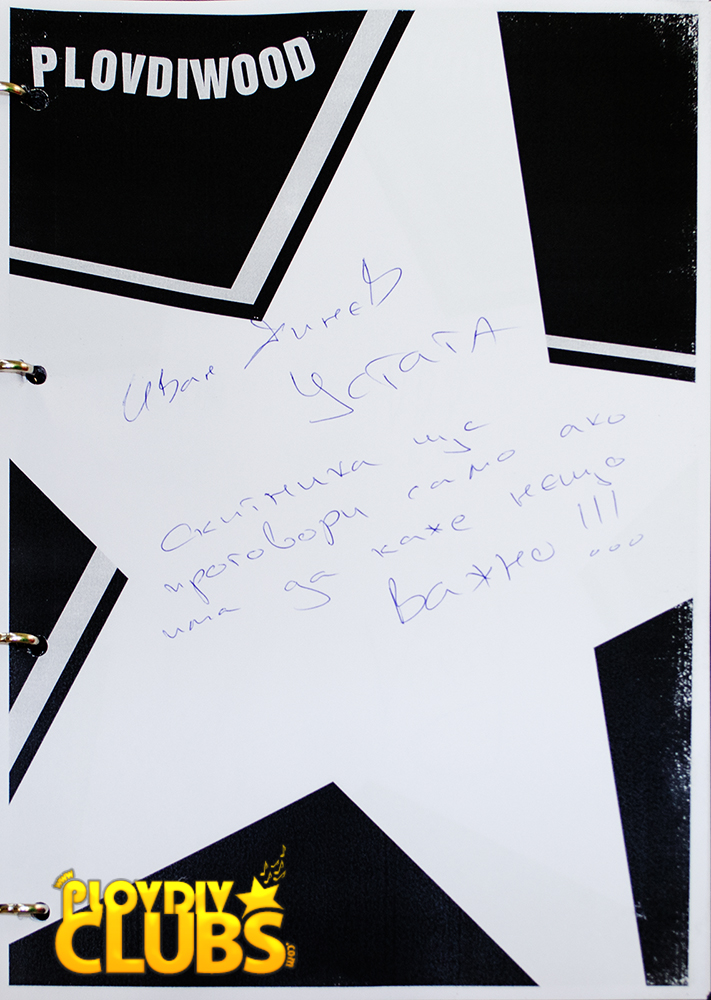 PLOVDIWOOD
Иван Динев
УСТАТА
Скитника ще
проговори само ако
има да каже нещо
Важно !!! ...
www
PLOVDIV
CLUBS.com